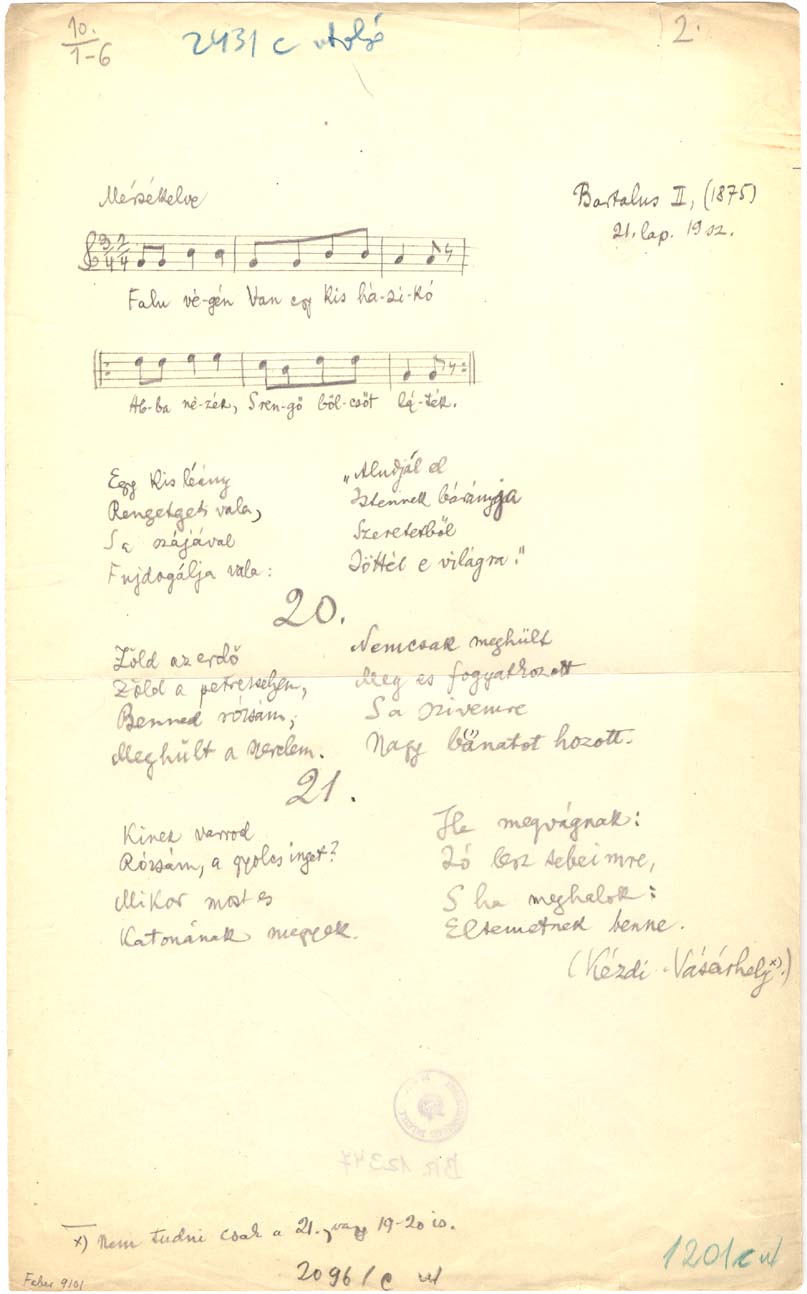 10.
1-6
2431 c utolsó
2.
Mérsékelve
Bartalus II, (1875)
21. lap. 19 sz.
3 2
4 4
Falu vé-gén Van egy kis há-zi-kó
Ab-ba né-zék, S ren-gő böl-csőt lá-ték.
Egy kis léány
Rengetgeti vala,
S a szájával
Fujdogálja vala:
„Aludjál el
Istennek bárányja
Szeretetből
Jöttél e világra!"
20.
Zöld az erdő
Zöld a petrezselyem,
Benned rózsám,
Meghült a szerelem.
Nemcsak meghült
Meg es fogyatkozott
S a szivemre
Nagy bánatot hozott.
21.
Kinek varrod
Rózsám, a gyolcs inget?
Mikor most es
Katonának megyek.
Ha megvágnak:
Jó lesz sebeimre,
S ha meghalok:
Eltemetnek benne.
(Kézdi-Vásárhely x).)
BR. 12347
x) Nem tudni csak a 21. vagy 19-20 is.
1201/c
Faber 9101
2096/c